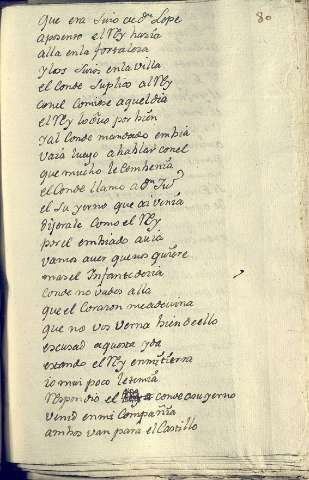 80
que era suio de dn Lope
aposento el Rey hazia
alla en la fortaleza
y los suios en la villa
el Conde suplico al Rey
con el comiese aquel dia
el Rey lo tuvo por bien
y al Conde mandado embia
vaia luego a hablar con el
que mucho le combenia
el Conde llamo a dn Juo
el su yerno que ai venia
dijerale como el Rey
por el embiado avia
vamos a ver que nos quiere
mas el Infante decia
Conde no vades alla
que el Corazon me adevina
que no vos verna bien de ello
escusad aquesta yda
estando el Rey en mi tierra
io mui poco le temia
respondio el Conde a su yerno
venid en mi Compañia
ambos van para el Castillo